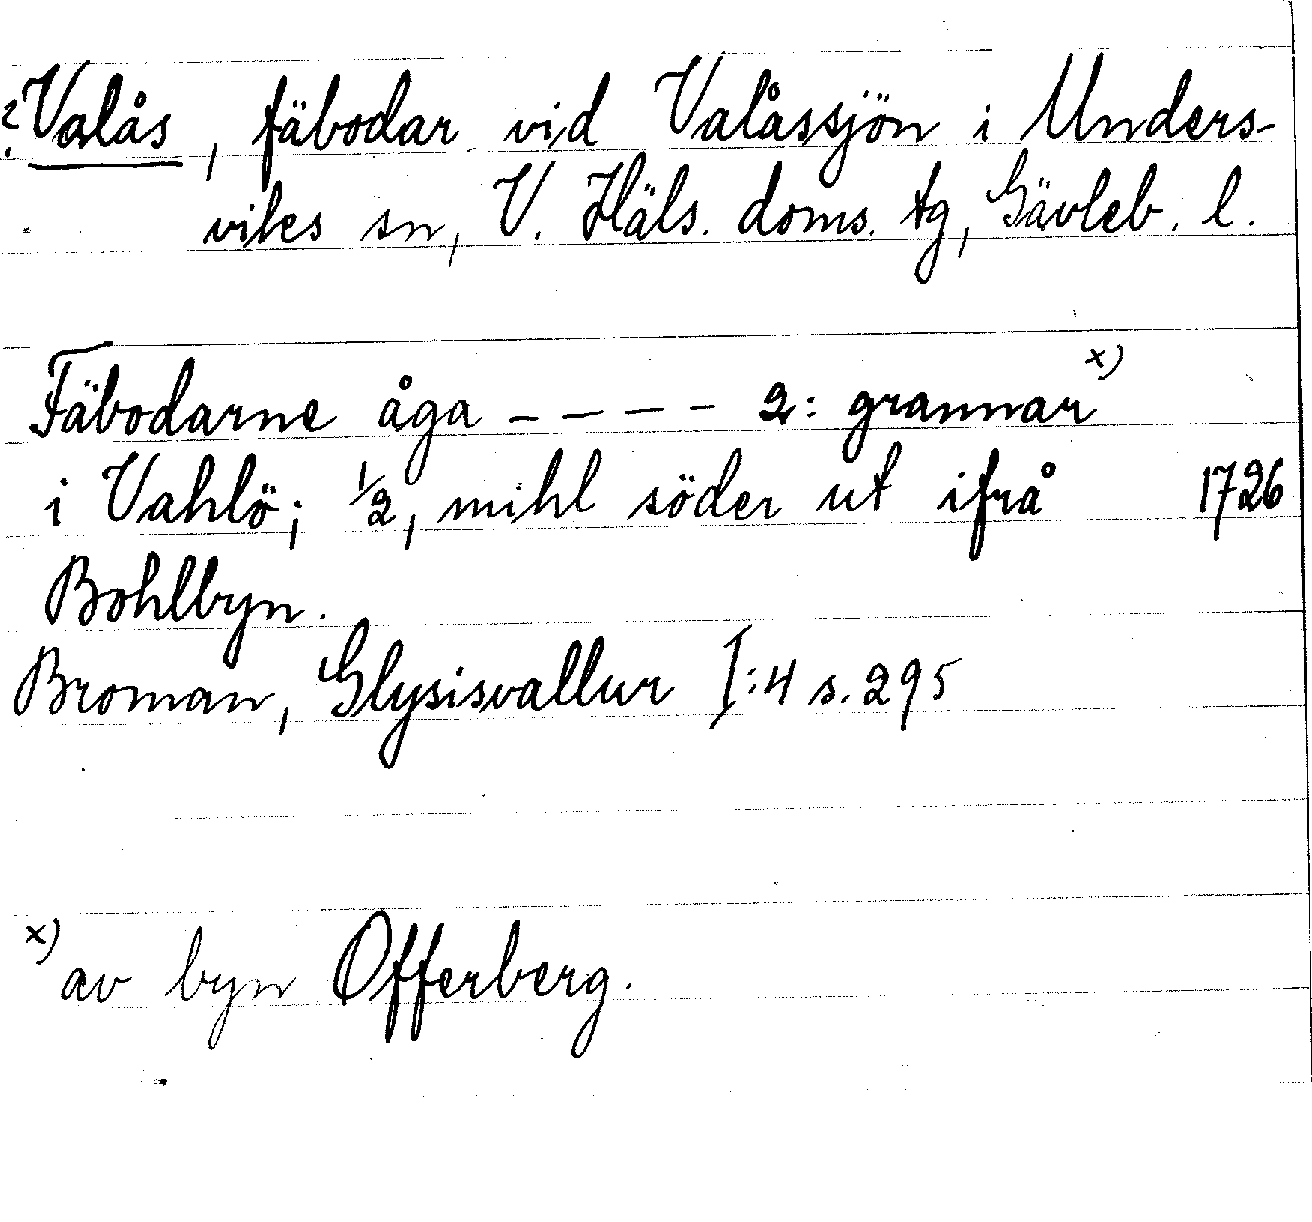 ? Valås, fäbodar vid Valåssjön i Unders-
vikes sn, V. Häls. doms. tg, Gävleb. l.
Fäbodarne åga – – – – 2: grannar x)
i Vahlö; 1/2, mihl söder ut ifrå 1726
Bohlbyn.
Broman, Glysisvallur I:4 s. 295
x) av byn Offerberg.